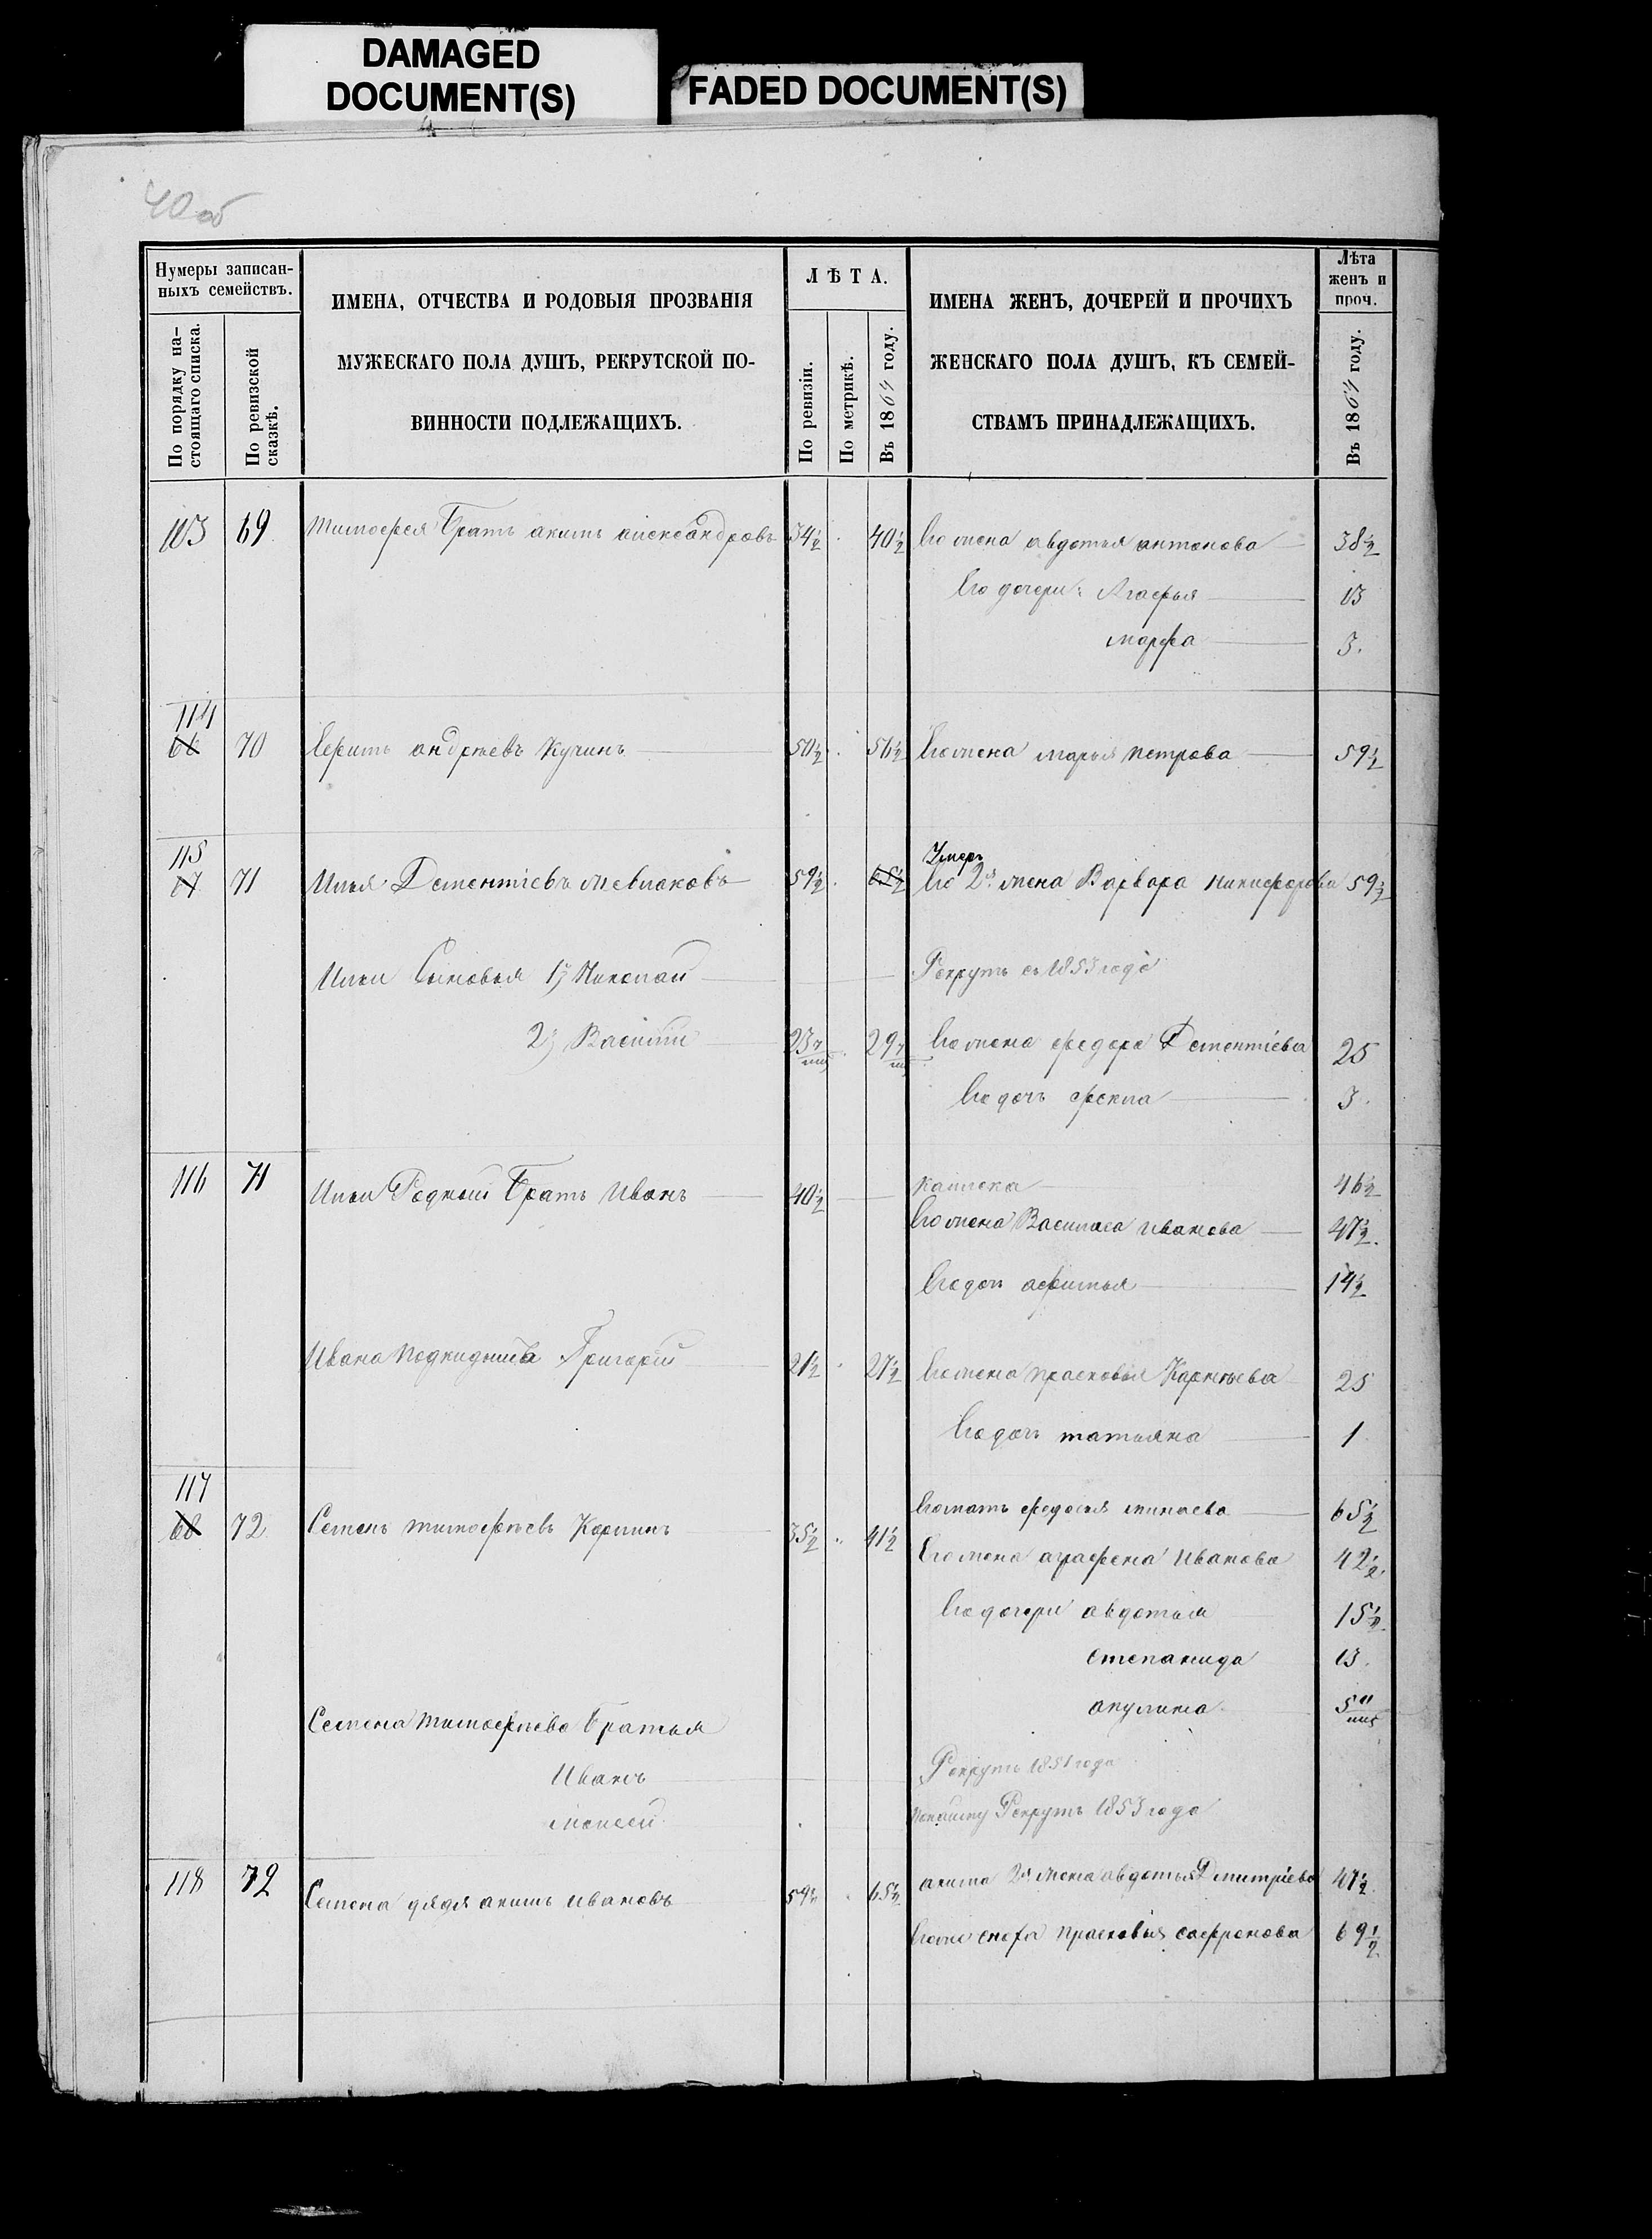 DAMAGED
DOCUMENT(S)
FADED DOCUMENT(S)
40 об
Нумеры записан-
ныхъ семействъ.
По порядку на-
стоящаго списка.
По ревизской
сказкѣ.
ИМЕНА, ОТЧЕСТВА И РОДОВЫЯ ПРОЗВАНІЯ
МУЖЕСКАГО ПОЛА ДУШЪ, РЕКРУТСКОЙ ПО-
ВИННОСТИ ПОДЛЕЖАЩИХЪ.
ЛѢТА.
По ревизіи.
По метрикѣ.
Въ 1864 году.
ИМЕНА ЖЕНЪ, ДОЧЕРЕЙ И ПРОЧИХЪ
ЖЕНСКАГО ПОЛА ДУШЪ, КЪ СЕМЕЙ-
СТВАМЪ ПРИНАДЛЕЖАЩИХЪ.
Лѣта
женъ и
проч.
Въ 1864 году.
113 69 Тимофея Братъ акимъ александровъ 34½ 40½ Его жена авдотья антонова 38½
Его дочери: Агафья 13
марфа 3.
114
66 70 Ефимъ андреевъ Кучинъ 50½ 56½ Его жена марья петрова 59½
115
Умеръ
67 71 Илья Дементіевъ 59½ 65½ Его 2я жена Варвара никифорова 59½
Ильи Сыновья 1) Николай Рекрутъ съ 1853 года
2) Василій 23 29 Его жена федора Дементіева 25
Его дочь фекла 3.
116 71 Ильи Родный Братъ Иванъ 40½ калѣка 46½
Его жена Василиса иванова 47½.
Его дочь афимья 14½
Ивана подкидышъ Григорій 21½ 27½ Его жена прасковья Карнѣева 25
Его дочь татьяна 1
117
Его мать федосья минаева 65½
68 72 Семенъ тимофѣевъ 35½ 41½
Его жена аграфена Иванова 42½
Его дочери авдотья 15½
степанида 13.
акулина 5
Семена тимофѣева братья
Иванъ Рекрутъ 1851 года
моисей Рекрутъ 1853 года
118 72 Семена дядя акимъ ивановъ 59½ 65½ акима 2я жена авдотья Дмитріева 47½
сноха прасковья сафронова 69½